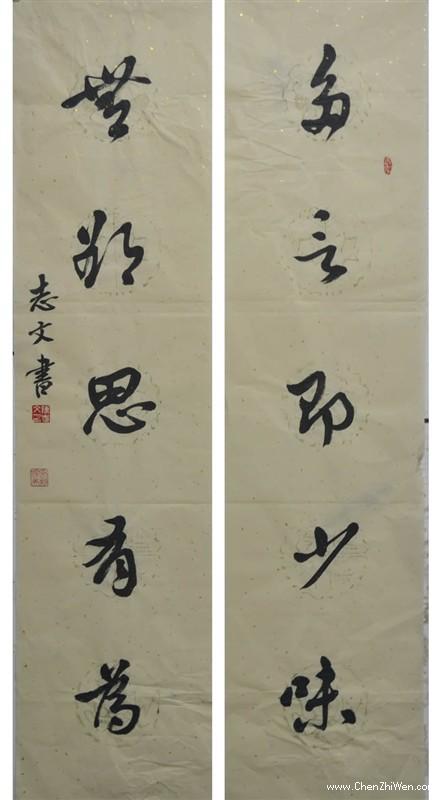 多言即少味
無欲思有為
志文書
www.ChenZhiWen.com